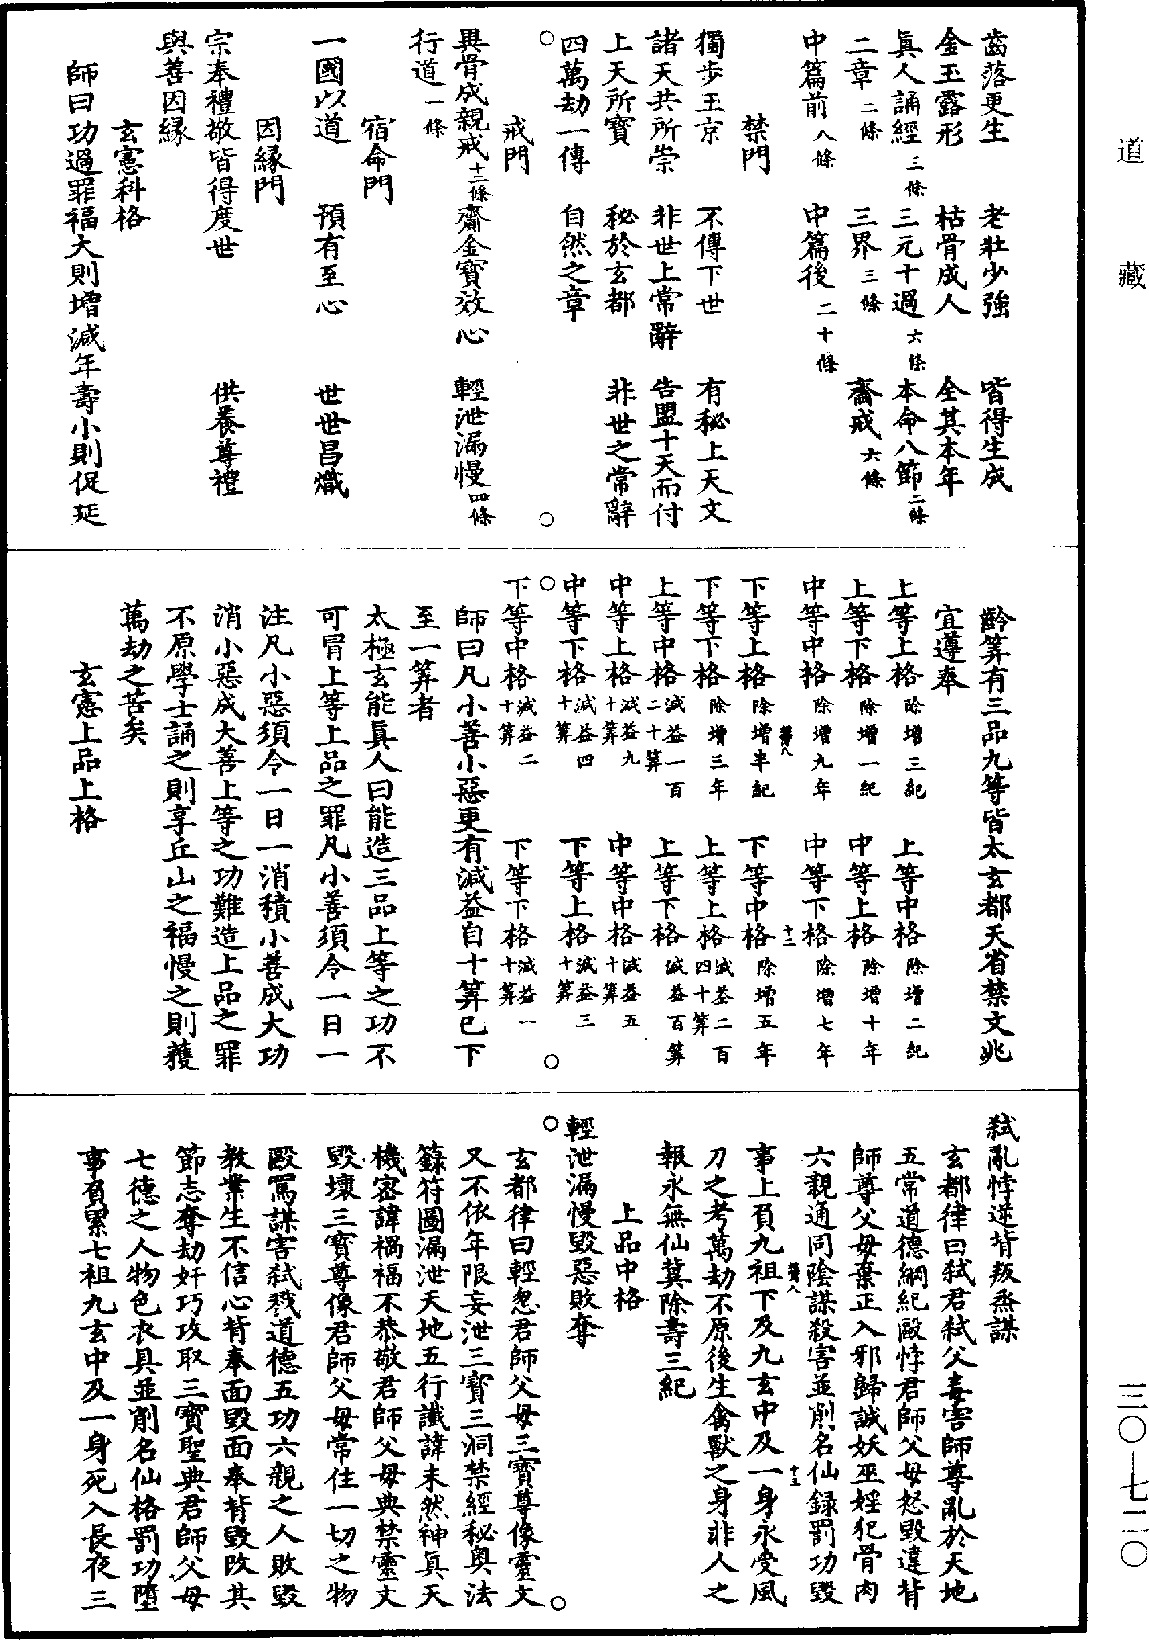 道藏
齒落更生　老壯少強　皆得生成
金玉露形　枯骨成人　全其本年
眞人誦經三條　三元十過六條　本命八節二條
二章二條　三界三條　齋戒六條
中篇前八條　中篇後二十條
禁門
獨步玉京　不傳下世　有秘上天文
諸天共所崇　非世上常辭　告盟十天而付
上天所寶　秘於玄都　非世之常辭
四萬劫一傳　自然之章
戒門
異骨成親戒十二條　齋金寶效心　輕泄漏慢四條
行道一條
宿命門
一國以道　預有至心　世世昌熾
因緣門
宗奉禮敬皆得度世　供養尊禮
與善因緣
玄憲科格
師曰功過罪福大則增減年壽小則促延
齡筭有三品九等皆太玄都天省禁文兆
宜遵奉
上等上格除增三紀　上等中格除增二紀
上等下格除增一紀　中等上格除增十年
中等中格除增九年　中等下格除增七年
下等上格除增半紀　下等中格除增五年
下等下格除增三年　上等上格減益二百四十筭
上等中格減益一百二十筭　上等下格減益百筭
中等上格減益九十筭　中等中格減益五十筭
中等下格減益四十筭　下等上格減益三十筭
下等中格減益二十筭　下等下格減益一十筭
師曰凡小善小惡更有減益自十筭已下
至一筭者
太極玄能眞人曰能造三品上等之功不
可冐上等上品之罪凡小善須令一日一
注凡小惡須令一日一消積小善成大功
消小惡成大善上等之功難造上品之罪
不原學士誦之則享丘山之福慢之則獲
萬劫之苦矣
玄憲上品上格
弑亂悖逆背叛烝謀
玄都律曰弑君弑父毒害師尊亂於天地
五常道德綱紀毆悖君師父母怒毀違背
師尊父母棄正入邪歸誠妖巫婬犯骨肉
六親通同陰謀殺害並削名仙錄罰功毀
事上頁九祖下及九玄中及一身永受風
刀之考萬劫不原後生禽獸之身非人之
報永無仙冀除壽三紀
上品中格
輕泄漏慢毀惡敗奪
玄都律曰輕忽君師父母三寶尊像靈文
又不依年限妄泄三寶三洞禁經秘奧法
籙符圖漏泄天地五行讖諱未然神眞天
機密諱禍福不恭敬君師父母典禁靈文
毀壞三寶尊像君師父母常住一切之物
毆罵謀害弑戮道德五功六親之人敗毀
教業生不信心背奉面毀面奉背毀改其
節志奪劫奸巧攻取三寶聖典君師父母
七德之人物色衣具並削名仙格罰功墮
事負累七祖九玄中及一身死入長夜三
三〇—七二〇